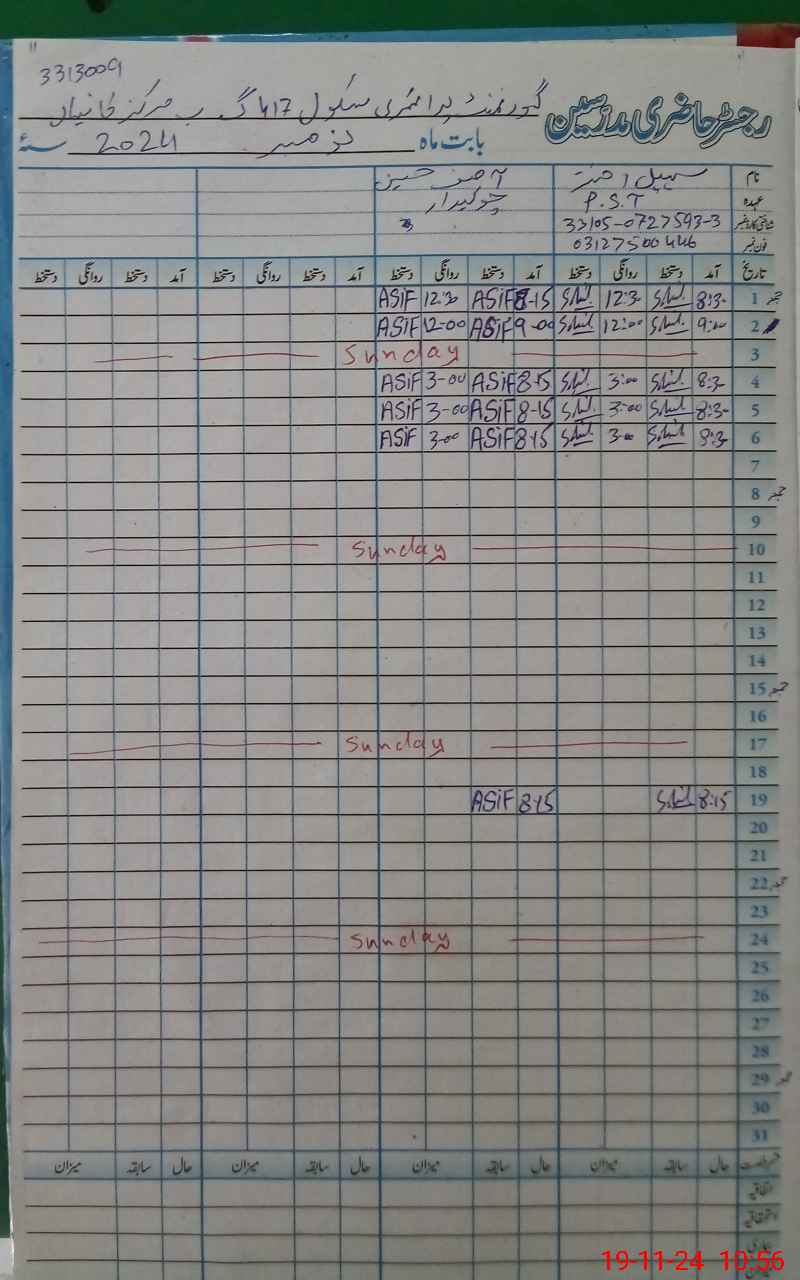 3313009
گورنمنٹ پرائمری سکول 417 گ ب مرکز کانیاں
رجسٹر حاضری مدرسین
بابت ماہ نومبر 2024 سنہ
نام سہیل احمد آصف حسین
عہدہ P.S.T چوکیدار
شناختی کارڈ نمبر 33105-0727593-3
فون نمبر 03127500446
تاریخ آمد دستخط روانگی دستخط آمد دستخط روانگی دستخط آمد دستخط روانگی دستخط آمد دستخط روانگی دستخط
1 8:30 12:30 8-15 ASiF 12:30 ASiF
2 9:00 12:00 9-00 ASiF 12-00 ASiF
3 Sunday
4 8:30 3:00 8-15 ASiF 3-00 ASiF
5 8:30 3-00 8-15 ASiF 3-00 ASiF
6 8:30 3-00 8-15 ASiF 3-00 ASiF
7
8
9
10 Sunday
11
12
13
14
15
16
17 Sunday
18
19 8:15 8-15 ASiF
20
21
22
23
24 Sunday
25
26
27
28
29
30
31
حال سابقہ میزان حال سابقہ میزان حال سابقہ میزان حال سابقہ میزان
اتفاقیہ
استحقاقیہ
بیماری
19-11-24 10:56